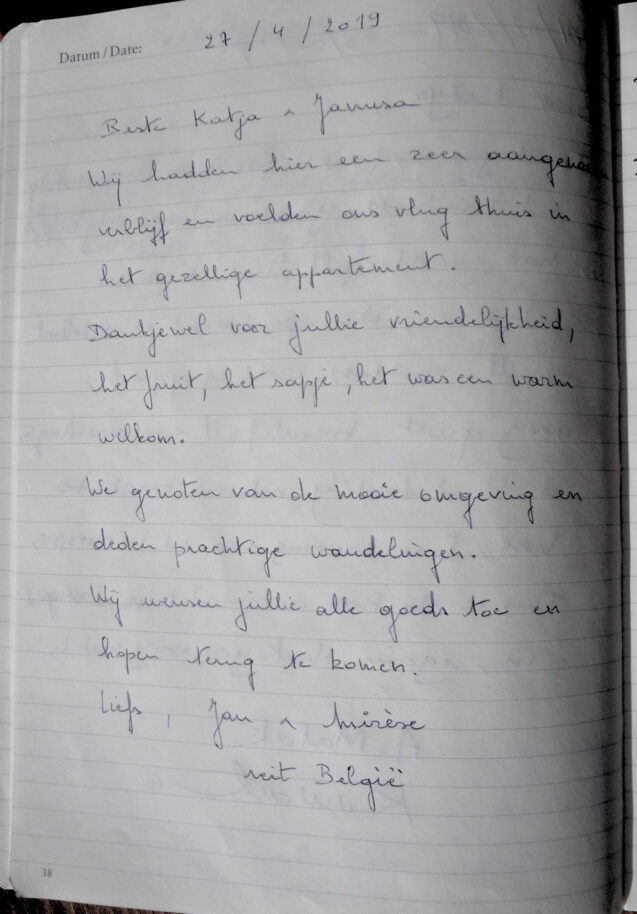 Datum / Date: 27 / 4 / 2019
Beste Katja ^ Janusa
Wij hadden hier een zeer
verblijf en voelden ons vlug thuis in
het gezellige appartement.
Dankjewel voor jullie vriendelijkheid,
het fruit, het sapje, het was een warm
welkom.
We genoten van de mooie omgeving en
deden prachtige wandelingen.
Wij wensen jullie alle goeds toe en
hopen terug te komen.
liefs, Jan ^
uit België
38